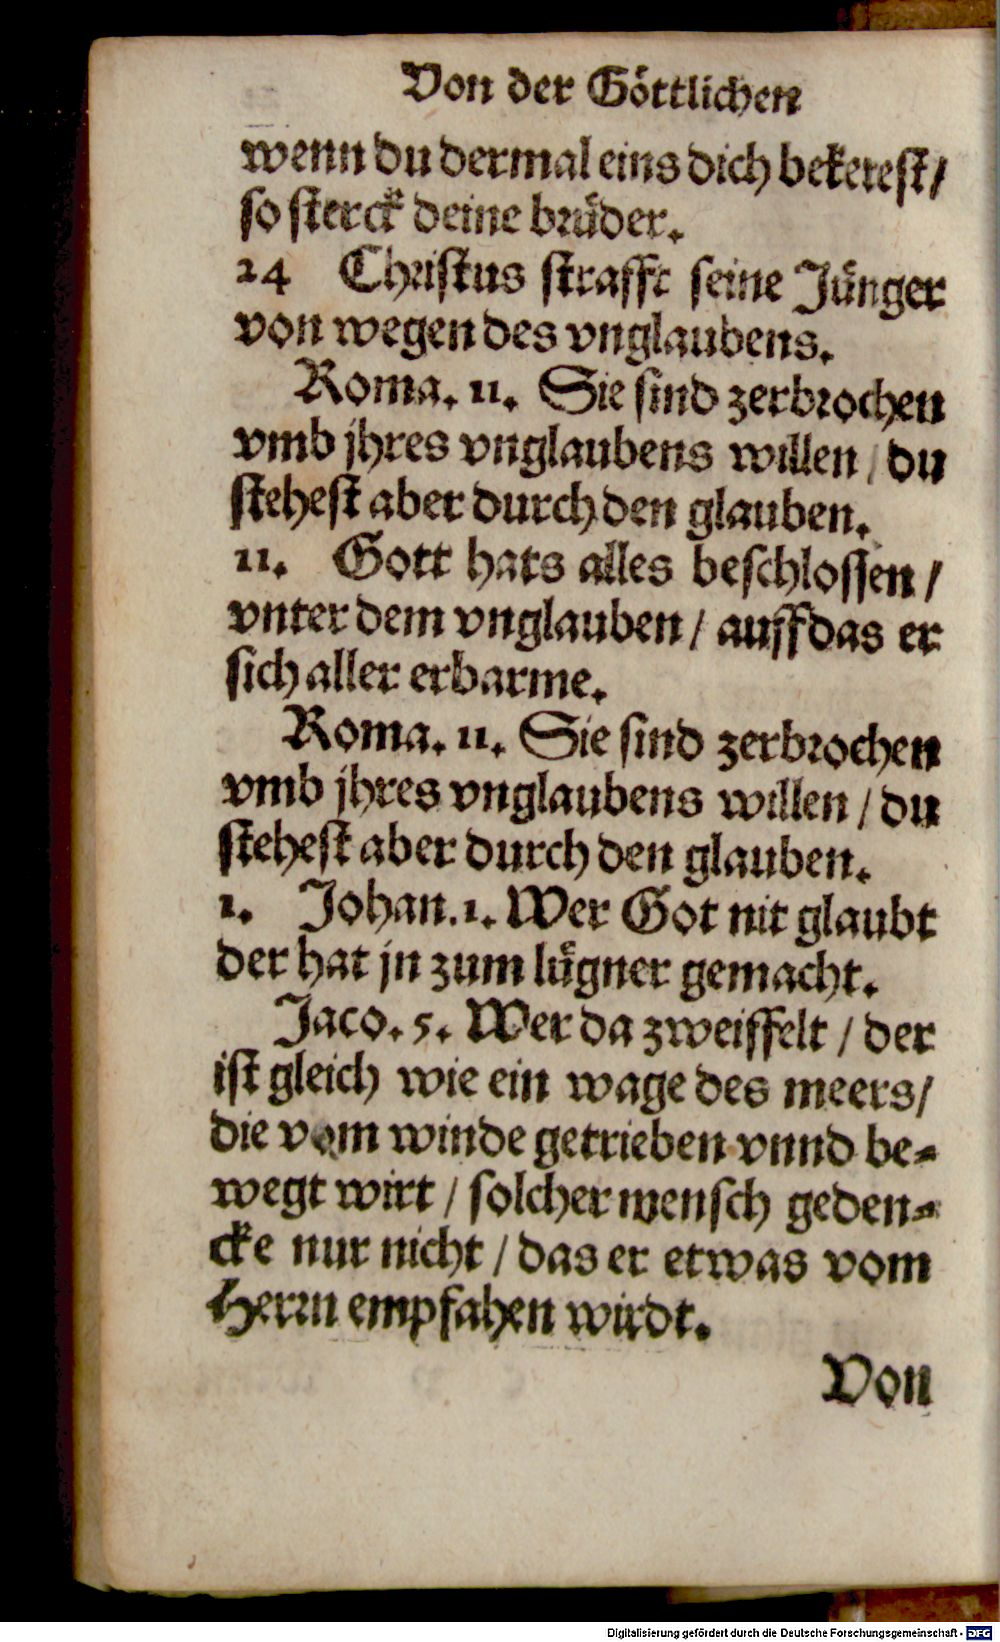 Von der Göttlichen
wenn du dermal eins dich bekerest/
so sterck deine brüder.
24 Christus strafft seine Jünger
von wegen des vnglaubens.
Roma. 11. Sie sind zerbrochen
vmb jhres vnglaubens willen / du
stehest aber durch den glauben.
11. Gott hats alles beschlossen /
vnter dem vnglauben / auffdas er
sich aller erbarme.
Roma. 11. Sie sind zerbrochen
vmb jhres vnglaubens willen / du
stehest aber durch den glauben.
1. Johan. 1. Wer Got nit glaubt
der hat jn zum lügner gemacht.
Jaco. 5. Wer da zweiffelt / der
ist gleich wie ein wage des meers/
die vom winde getrieben vnnd be-
wegt wirt / solcher mensch geden-
cke nur nicht / das er etwas vom
Herrn empfahen wirdt.
Von
Digitalisierung gefördert durch die Deutsche Forschungsgemeinschaft - DFG